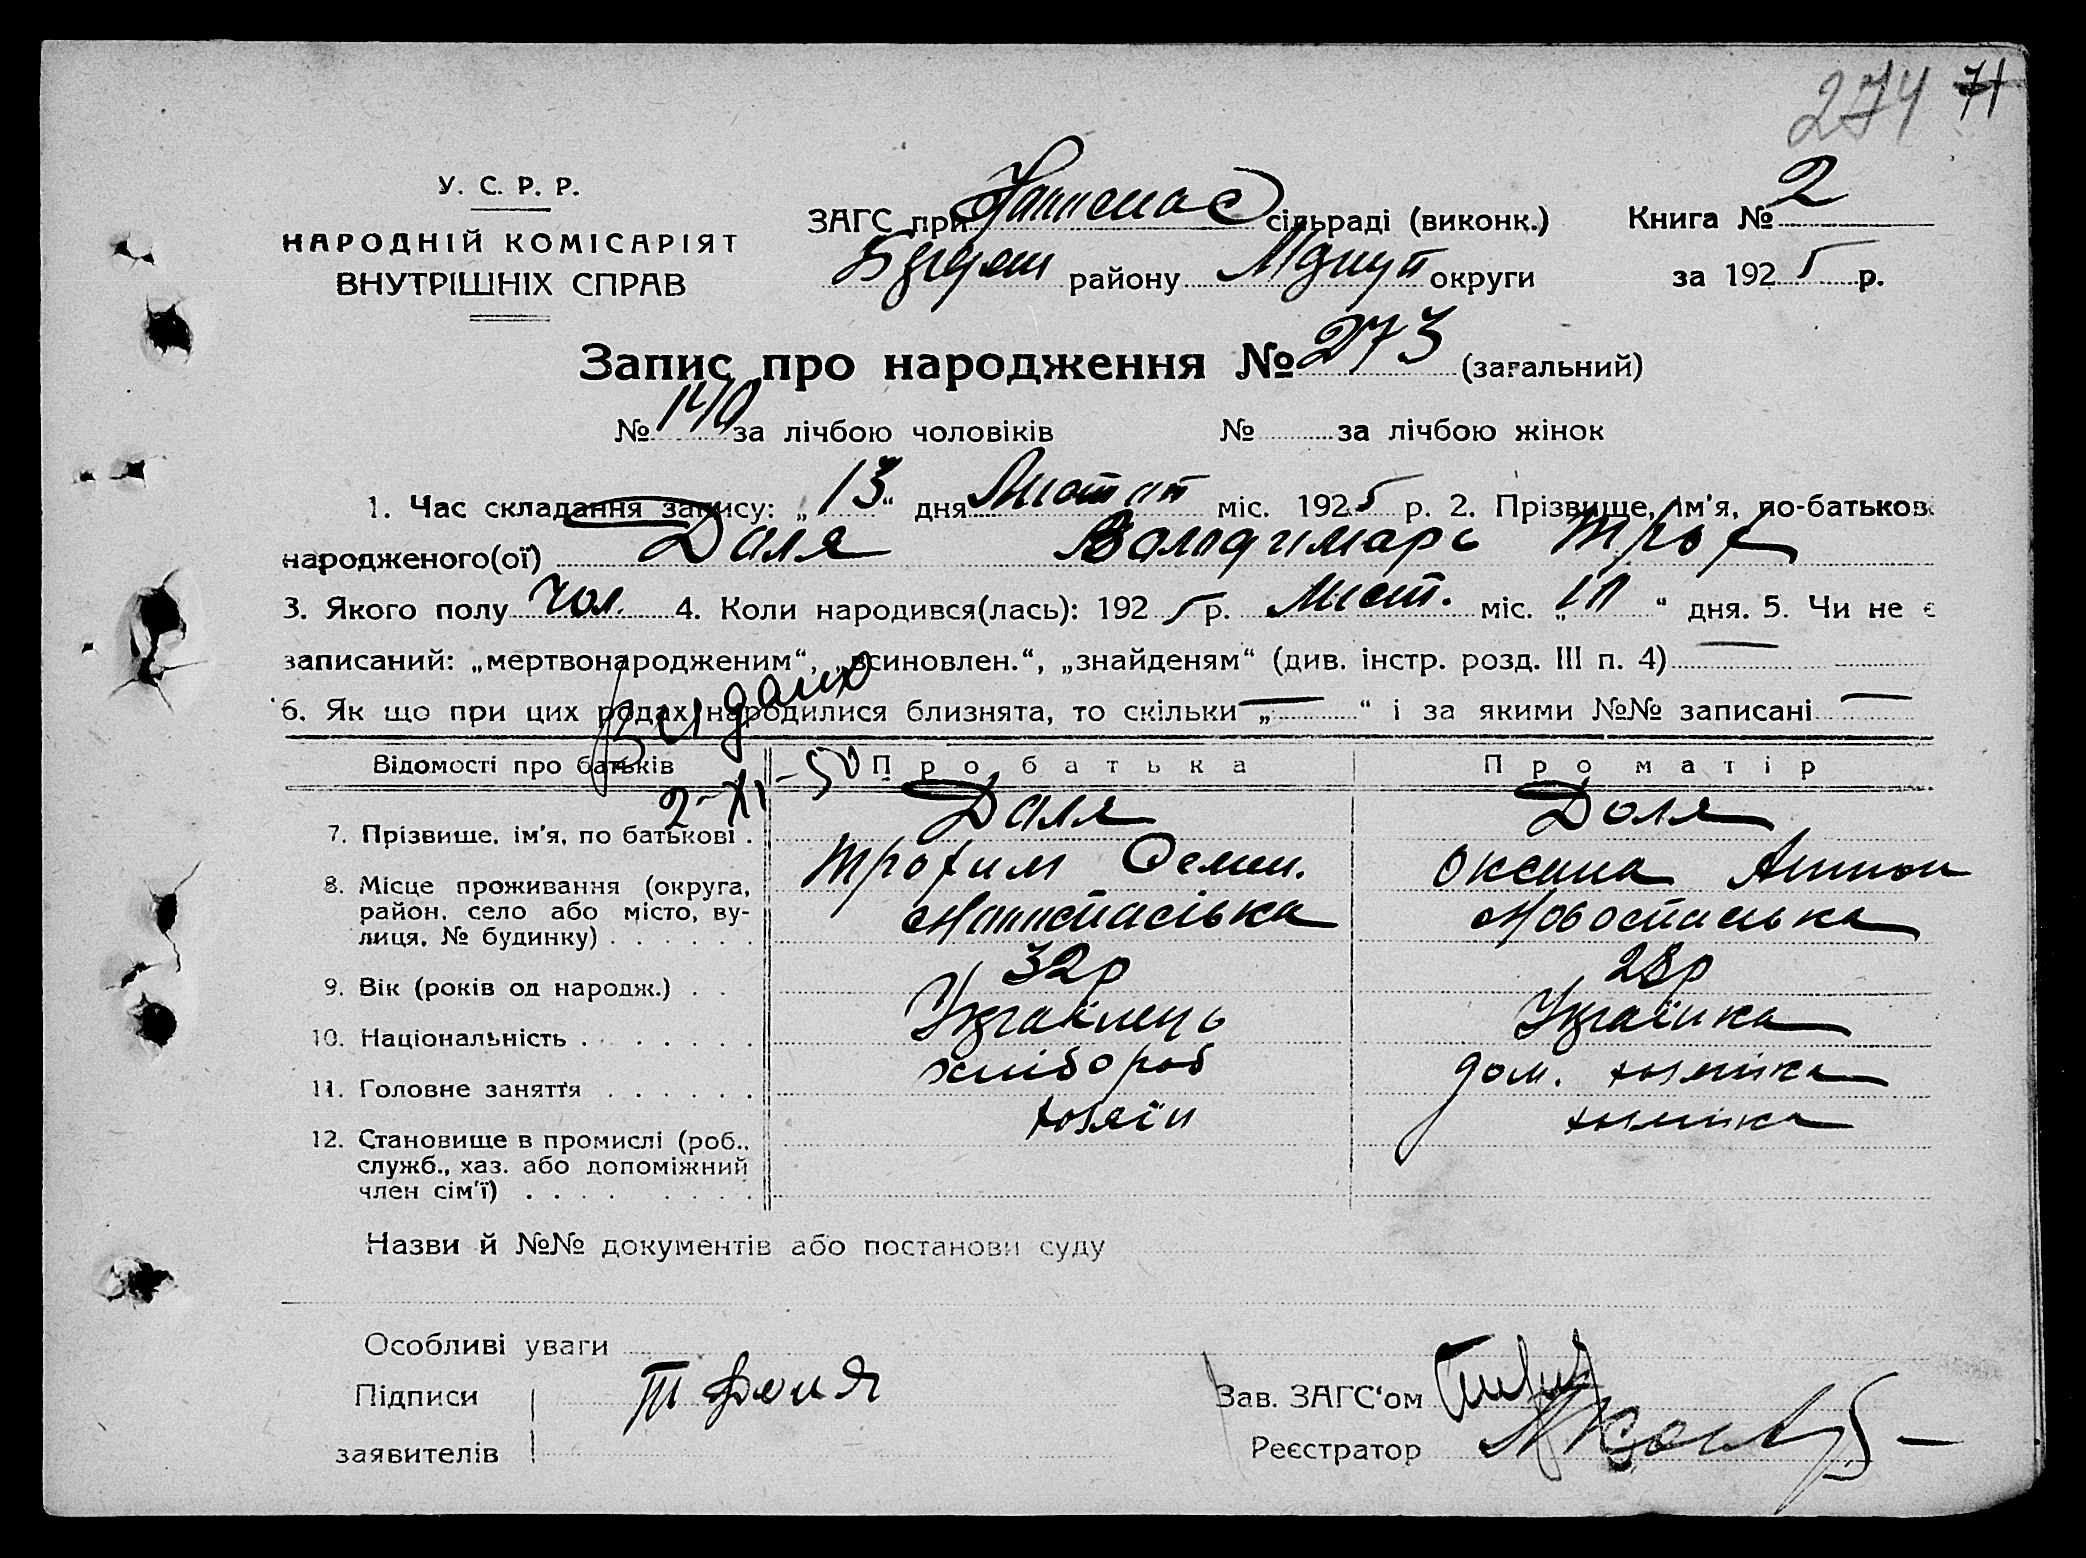 274 71
У. С. Р. Р.
НАРОДНІЙ КОМІСАРІЯТ
ВНУТРІШНІХ СПРАВ
ЗАГС при сільраді (виконк.) Книга № 2
району округи за 1925 р.
Запис про народження № 273 (загальний)
№ 140 за лічбою чоловіків № за лічбою жінок
1. Час складання запису: „ 13 “ дня міс. 1925 р. 2. Прізвище, ім'я, по-батькові
народженого(ої) Доля Володимарь Троф
3. Якого полу Чол. 4. Коли народився(лась): 1925 р. Лист. міс. „ “ дня. 5. Чи не є
записаний: „мертвонародженим“, „всиновлен.“, „знайденям“ (див. інстр. розд. III п. 4) —
6. Як що при цих родах народилися близнята, то скільки „ — “ і за якими №№ записані —
2-XI-50
Відомості про батьків Про батька Про матір
7. Прізвище, ім'я, по батькові . Доля Доля
Трофим Семен. Оксана Антон
8. Місце проживання (округа,
район, село або місто, ву-
лиця, № будинку) . . . . . . Новоспаська
9. Вік (років од народж.) . . 32р 28р
10. Національність . . . . . . . Українець Українка
11. Головне заняття . . . . . . хлібороб дом. хозяйка
12. Становище в промислі (роб., хозяїн хозяйка
служб., хаз. або допоміжний
член сім'ї) . . . . . . . .
Назви й №№ документів або постанови суду
Особливі уваги
Підписи Т Доля Зав. ЗАГС'ом
заявителів Реєстратор